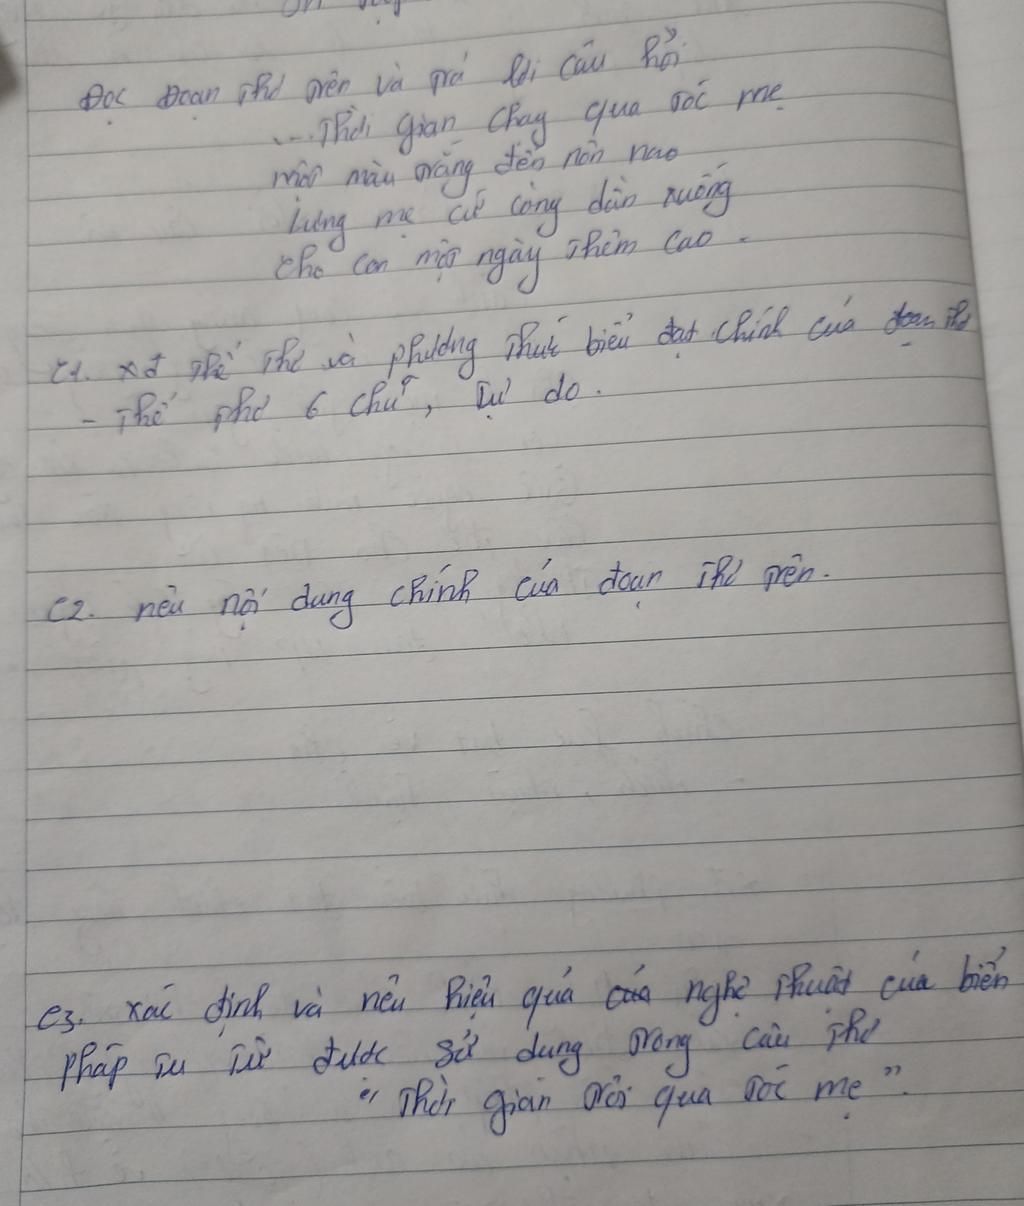 Đọc đoạn thơ trên và trả lời câu hỏi
...Thời gian chạy qua tóc mẹ
một màu trắng đến nôn nao
lưng mẹ cứ còng dần xuống
cho con một ngày thêm cao.
C1. xđ thể thơ và phương thức biểu đạt chính của đoạn thơ
- Thể thơ 6 chữ, Tự do.
C2. nêu nội dung chính của đoạn thơ trên.
C3. xác định và nêu hiệu quả của nghệ thuật của biến
pháp tu từ được sử dụng trong câu thơ
"Thời gian trôi qua tóc mẹ".